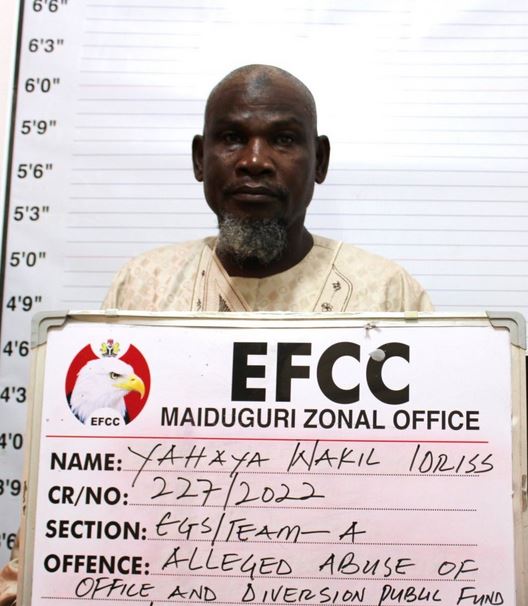 6'6"
6'3"
6'0"
5'9"
5'6"
5'3"
5'0"
4'9"
4'6
4'3
4'0
3'9
3'6
EFCC
EFCC
MAIDUGURI ZONAL OFFICE
NAME: YAHAYA WAKIL IDRISS
CR/NO: 227/2022
SECTION: EGS/TEAM-A
OFFENCE: ALLEGED ABUSE OF
OFFICE AND DIVERSION PUBLIC FUND